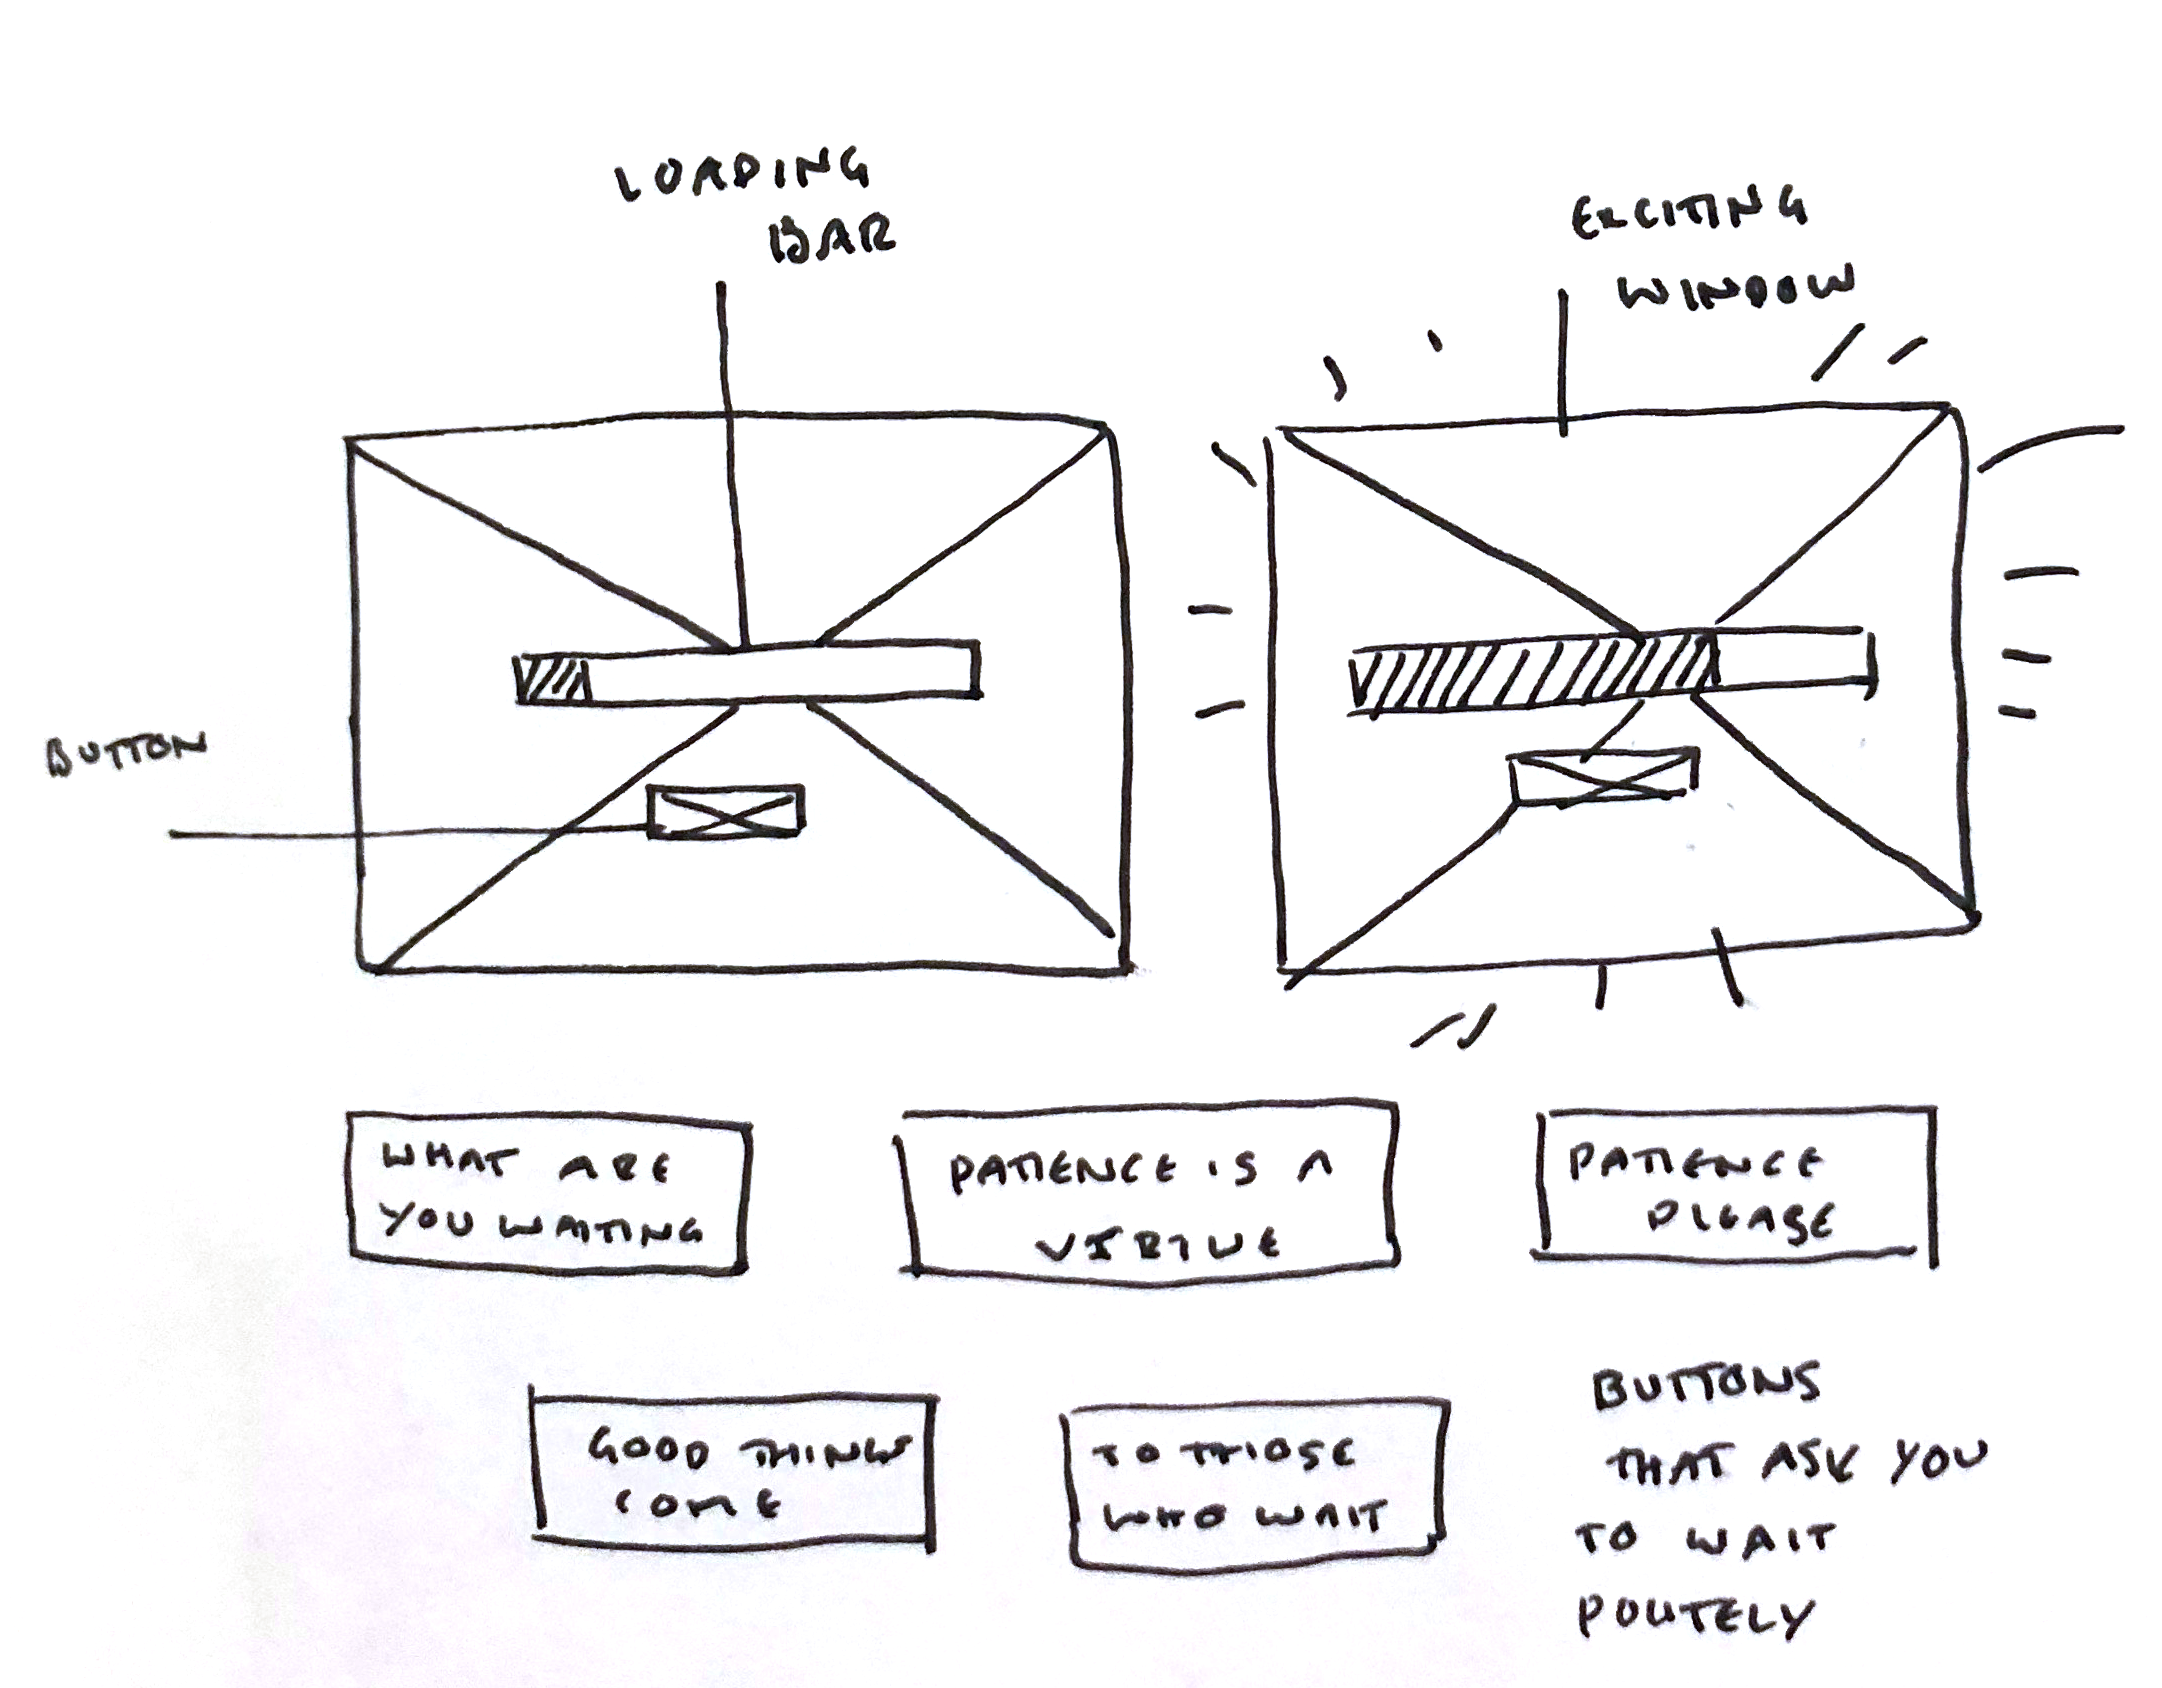 LOADING
BAR
EXCITING
WINDOW
BUTTON
WHAT ARE
YOU WAITING
PATIENCE IS A
VIRTUE
PATIENCE
PLEASE
GOOD THINGS
COME
TO THOSE
WHO WAIT
BUTTONS
THAT ASK YOU
TO WAIT
POLITELY